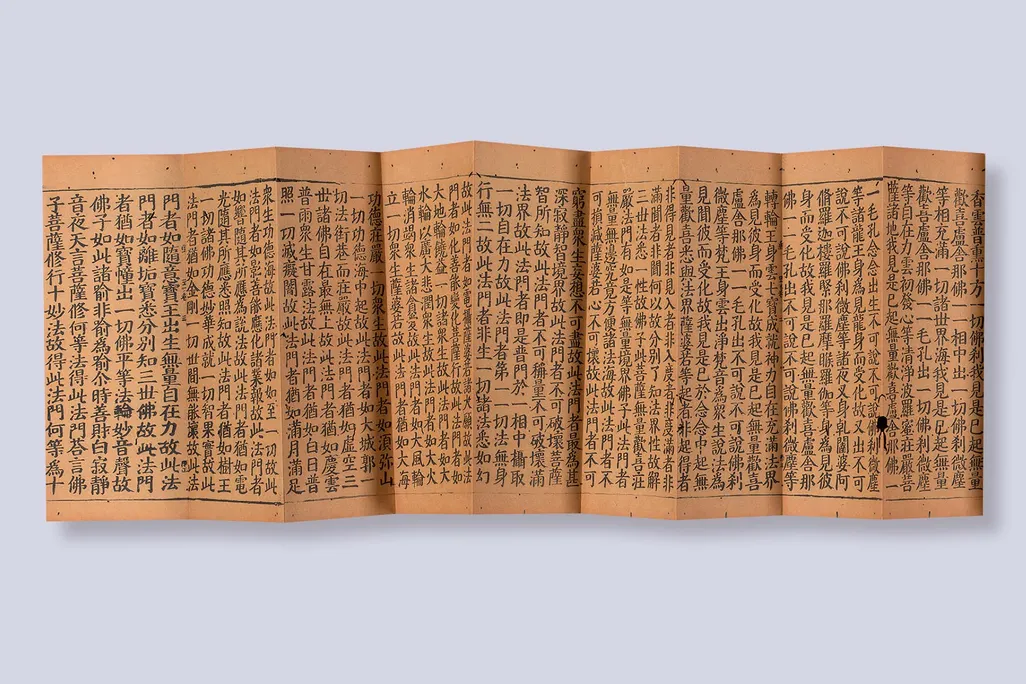 香雲普重十方一切佛刹我見是已起無量
歡喜盧舍那佛一一相中出一切佛刹微塵
等相充滿一切諸世界海我見是已起無量
歡喜盧舍那佛一一毛孔出一切佛刹微塵
等自在力雲初發心等清淨波羅蜜莊嚴菩
薩諸地我見是已起無量歡喜盧舍那佛一
一毛孔念念出生不可說不可說佛刹微塵
等諸龍王身為見龍身而受化故又出不可
說不可說佛刹微塵等諸夜叉身乹闥婆阿
脩羅迦樓羅緊那羅摩睺羅伽等身為見彼
身而受化故我見是已起無量歡喜盧舍那
佛一一毛孔出不可說不可說佛刹微塵等
轉輪王身雲七寶成就神力自在充滿法界
為見彼身而受化故我見是已起無量歡喜
盧舍那佛一一毛孔出不可說不可說佛刹
微塵等梵王身雲出淨梵音為衆生說法故
見聞彼而受化故我見是已於念念中起無
量歡喜悉與法界薩婆若等起者非起得者
非得見者非見入者非入度者非度滿者非
滿聞者非聞何以故分別了知法界性相故
三世法悉一性故佛子此無量歡喜莊
嚴法門有如是等無量境界菩薩無能壞
無邊無量方便諸法海故此法門者不
可損減薩婆若心不可壞故此法門者不可
窮盡衆生妄想不可盡故此法門者最為甚
深寂靜智境界故此法門者
智所知故此法門者不可稱量不可破壞滿
法界故此法門者即是普門於一相中攝取
一切自在力故此法門者第一一切無身
行無二故此法門者非生一切諸法悉如幻
故此法門者如電薩婆若諸大願故此法
門者如化善能變化菩薩行故此法門者如
大地輪饒益一切諸衆生故此法門者如
水輪以廣大悲潤衆生故此法門者如火
輪消竭衆生故此法門者如大風輪
立一切衆生薩婆若故此法門者如大海
功德莊嚴一切衆生故此法門者如須弥山
一切功德海中起故此法門者如大城郭一
切法街巷而莊嚴故此法門者猶如虛空三
世諸佛自在最無上故此法門者猶如慶雲
普雨衆生甘露法故此法門者猶如白日普
照一切滅癡闇故此法門者猶如滿月滿足
衆生功德海故此法門者如如至一切故此
法門者如影善能應化諸業報故此法門者
如響隨其所應為說法故此法門者猶如電
光隨其所應悉照知故此法門者猶如樹王
一切諸佛功德妙華成就一切智果實故此
法門者猶如金剛一切世間無能壞故此法
門者如隨意寶王出生無量自在力故此法
門者如離垢寶悉分別知三世佛故此法門
者猶如寶幢出一切佛平等法輪妙音聲故
佛子如此諸喻非喻為喻尒時善財白寂靜
音夜天言善薩修何等法得此法門荅言佛
子菩薩修行十妙法故得此法門何等為十